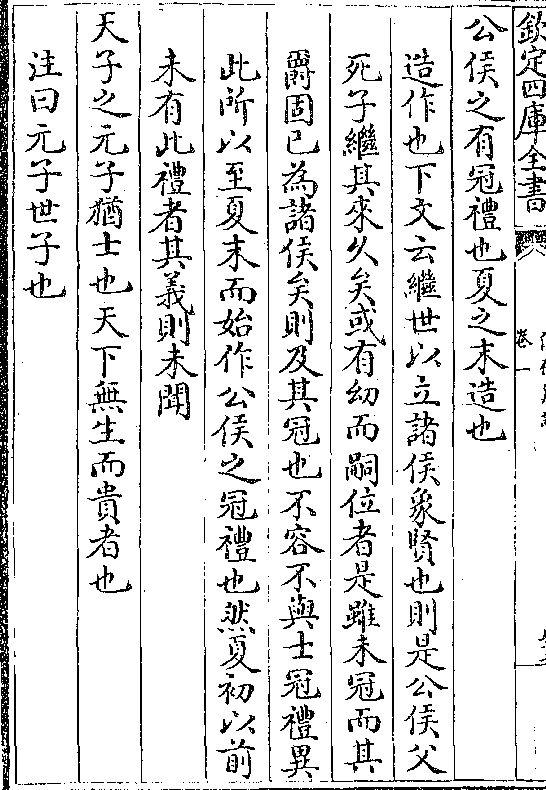 欽定四庫全書
卷一
公侯之有冠禮也夏之末造也
造作也下文云繼世以立諸侯象賢也則是公侯父
死子繼其來久矣或有幼而嗣位者是雖未冠而其
爵固已為諸侯矣則及其冠也不容不與士冠禮異
此所以至夏末而始作公侯之冠禮也然夏初以前
未有此禮者其義則未聞
天子之元子猶士也天下無生而貴者也
注曰元子世子也